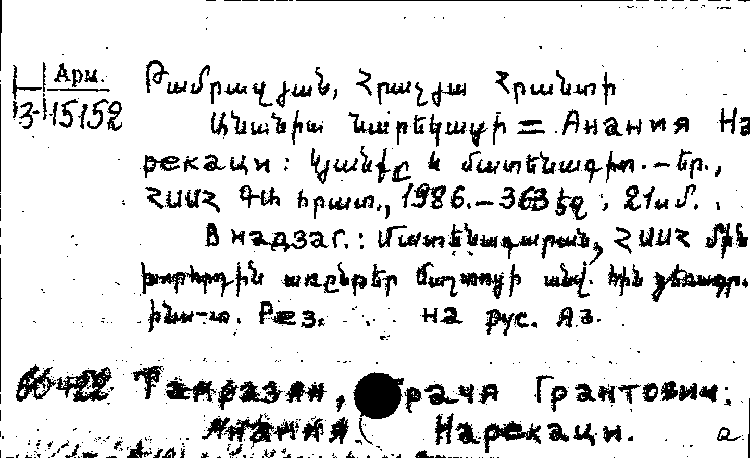 Арм.
3-15152
Թամրազյան, Հրաչյա Հրանտի
Անանիա Նարեկացի = Анания На
рекаци: Կյանքը և մատենագիտ. – Եր.,
ՀՍՍՀ ԳԱ հրատ., 1986. – 363 էջ ; 21 սմ. .
В надзаг.: Մատենադարան, ՀՍՍՀ մին.
խորհրդին առընթեր Մաշտոցի անվ. հին ձեռագր.
ինս-տ. Рез. на рус. яз.
66422 Тамразян, Грачя Грантович.
Анания Нарекаци.